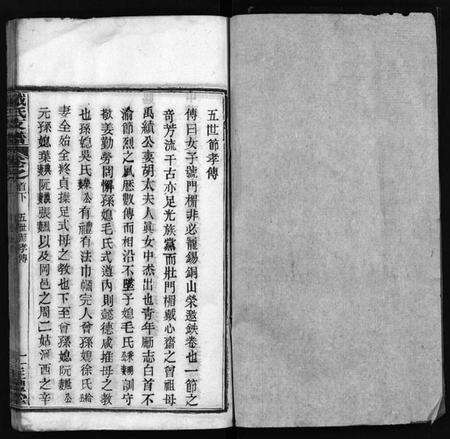 五世節孝傳
傳曰女子號門楣非必龍錫銅山榮邀鉄卷也一節之
奇芳流千古亦足光族黨而壯門楣戴心齋之曾祖母
禹績公妻胡太夫人眞女中杰出也青年勵志白首不
渝節烈之風歷數傳而相沿不墜子媳毛氏訓守
敬美勤勞罔懈孫媳毛氏式遵內則懿德咸推母之教
也孫媳吳氏公有禮有法巾幗完人曾孫媳徐氏
妻全始全終貞操足式母之教也下至曾孫媳阮
元孫媳葉阮張以及同邑之周二姑河西之辛
戴氏支譜 首下 五世節孝傳